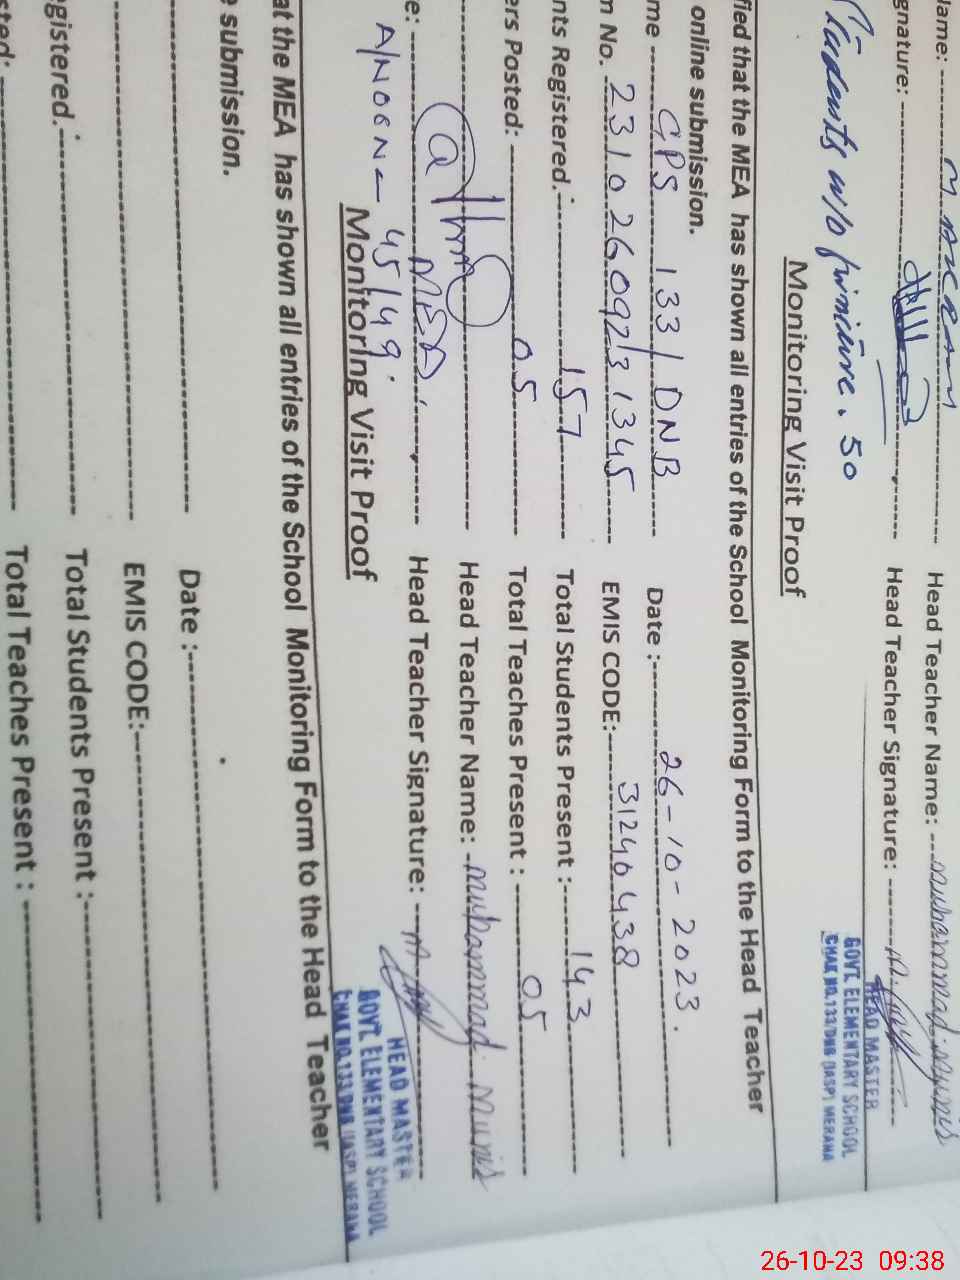 Name: Head Teacher Name: muhammad munis
gnature: Head Teacher Signature:
HEAD MASTER
GOVT. ELEMENTARY SCHOOL
CHAK NO.133/DNB (IASP) MERANA
Students w/o furniture. 50
Monitoring Visit Proof
fied that the MEA has shown all entries of the School Monitoring Form to the Head Teacher
online submission.
me GPS 133/DNB Date : 26-10-2023.
m No. 23102609231345 EMIS CODE: 31240438
nts Registered.: 157 Total Students Present : 143
ers Posted: 05 Total Teaches Present : 05
Head Teacher Name: muhammad munis
e: MEA, Head Teacher Signature:
HEAD MASTER
GOVT. ELEMENTARY SCHOOL
CHAK NO.133/DNB (IASP) MERANA
45/49.
Monitoring Visit Proof
at the MEA has shown all entries of the School Monitoring Form to the Head Teacher
e submission.
Date :
EMIS CODE:
egistered.: Total Students Present :
sted: Total Teaches Present :
26-10-23 09:38